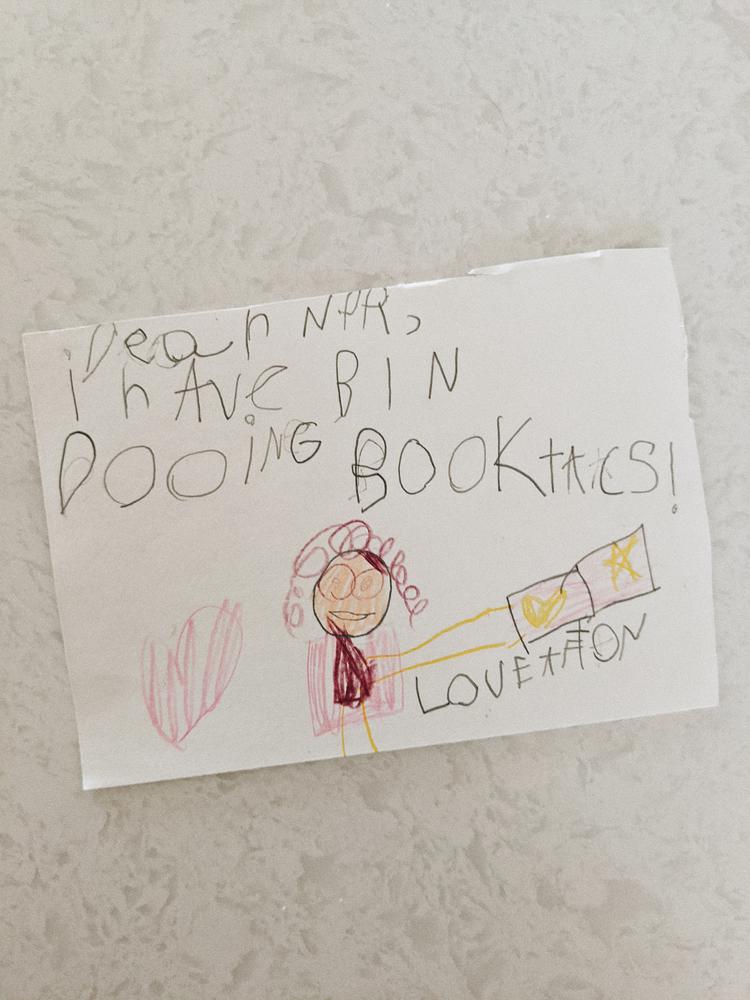 Dear NPR,
i hAVE BIN
DOOiNG BOOKtAlCS!
LOVE